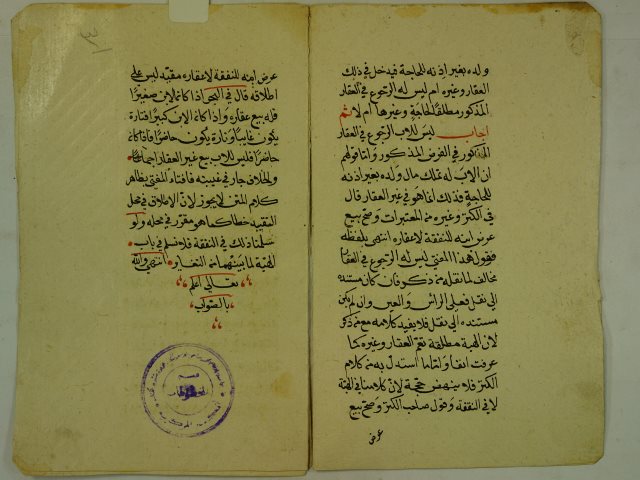 ولده بغير اذنه للحاجة فيدخل في ذلك
العقار وغيره ام ليس له الرجوع في العقار
المذكور مطلقا للحاجة وغيرها ام لا ثم
اجاب ليس للاب الرجوع في العقار
المذكور في الفرض المذكور وانما قولهم
ان الاب له تملك مال ولده بغير اذنه
للحاجة فذلك انما هو في غير العقار قال
في الكنز وغيره من المعتبرات وصح بيع
عرض ابنه للنفقة لا عقاره انتهى بلفظه
فقول هذا المفتي ليس له الرجوع في العقار
مخالف لما نقله من ذكر فان كان مستنده
الى نقل فعلى الراس والعين وان لم يكن
مستنده الى نقل فلا يفيد كلامه مع من ذكر
لان الهبة مطلقة تعم العقار وغيره كما
عرفت انفا وانما ما استدل به من كلام
الكنز فلا ينهض حجة لان كلامنا في الهبة
لا في النفقة وقول صاحب الكنز وصح بيع
عرض
عرض ابنه للنفقة لا عقاره مقيد ليس على
اطلاقه قال في البحر اذا كان الابن صغيرا
فله بيع عقاره واذا كان الابن كبيرا فتارة
يكون غايبا وتارة يكون حاضرا فاذا كان
حاضرا فليس للاب بيع غير العقار اجماعا
والخلاف جار في غيبته فافتاء المفتي بظاهر
كلام المتن لا يجوز لان الاطلاق في محل
التقييد خطا كما هو مقرر في محله ولو
سلمنا ذلك في النفقة فلا نسلم في باب
الهبة لما بينهما من التغاير انتهى والله
تعالى اعلم
بالصواب